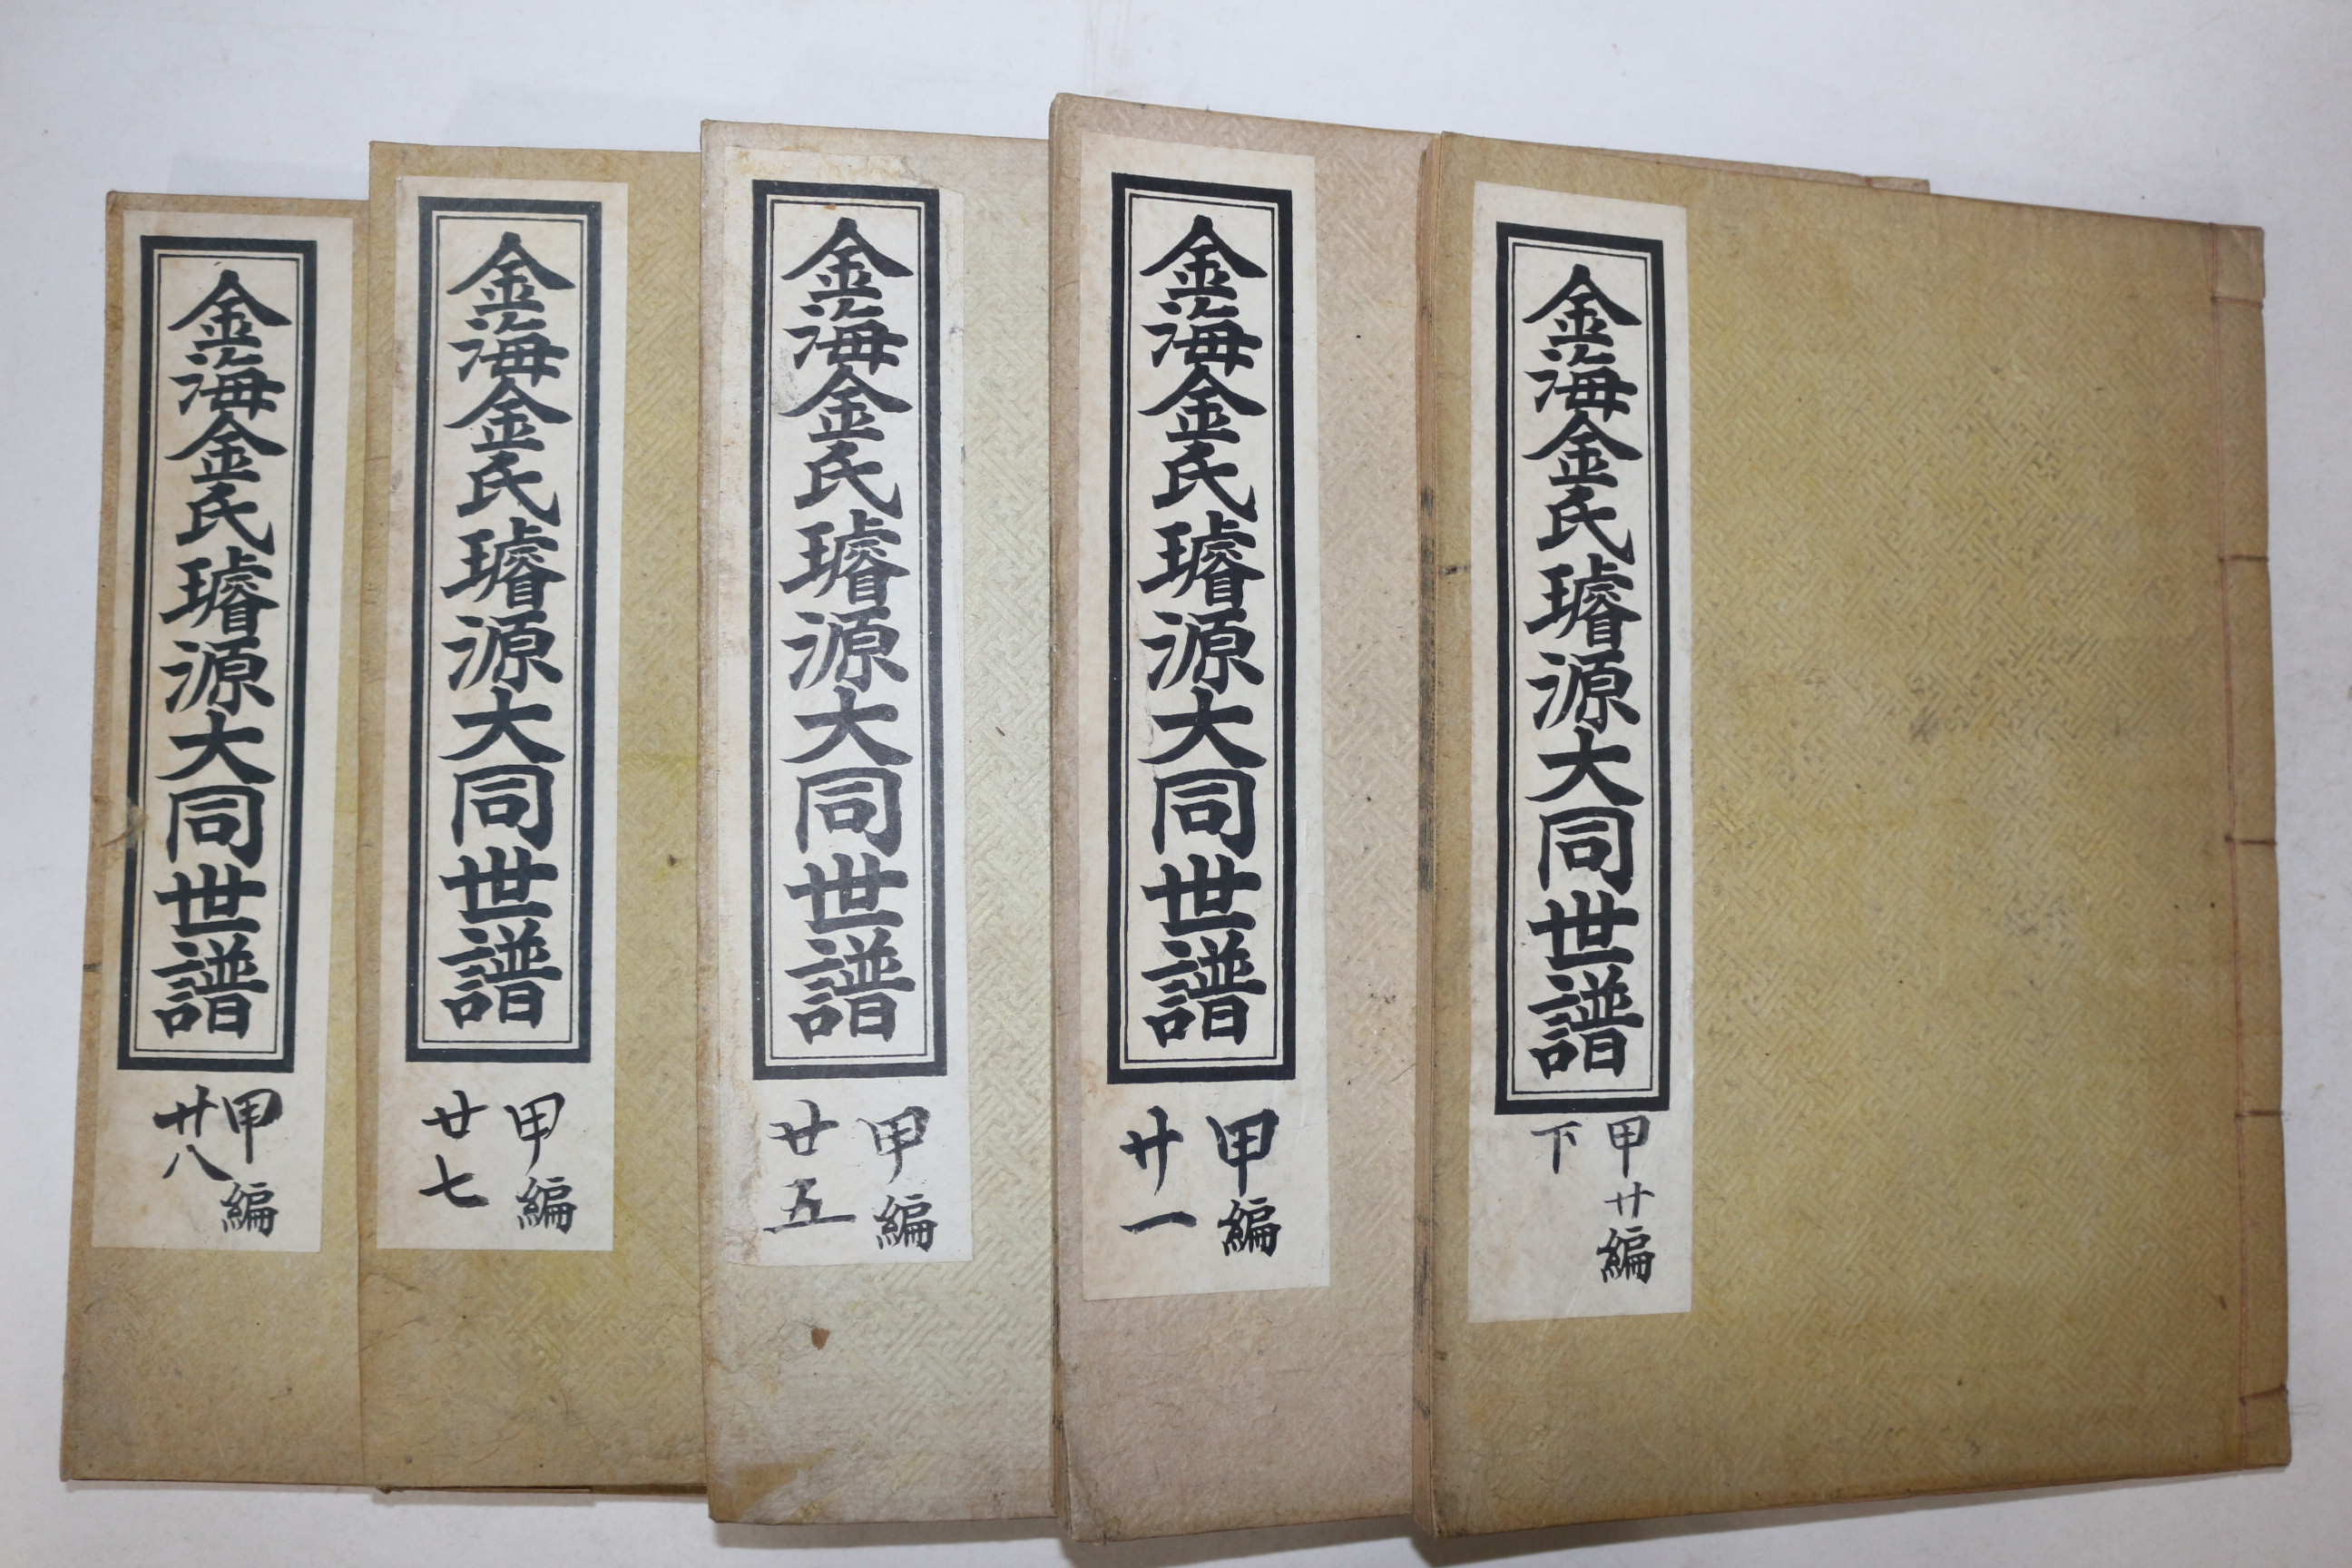 金海金氏璿源大同世譜
甲廿編
下
金海金氏璿源大同世譜
甲編
廿一
金海金氏璿源大同世譜
甲編
廿五
金海金氏璿源大同世譜
甲編
廿七
金海金氏璿源大同世譜
甲編
廿八